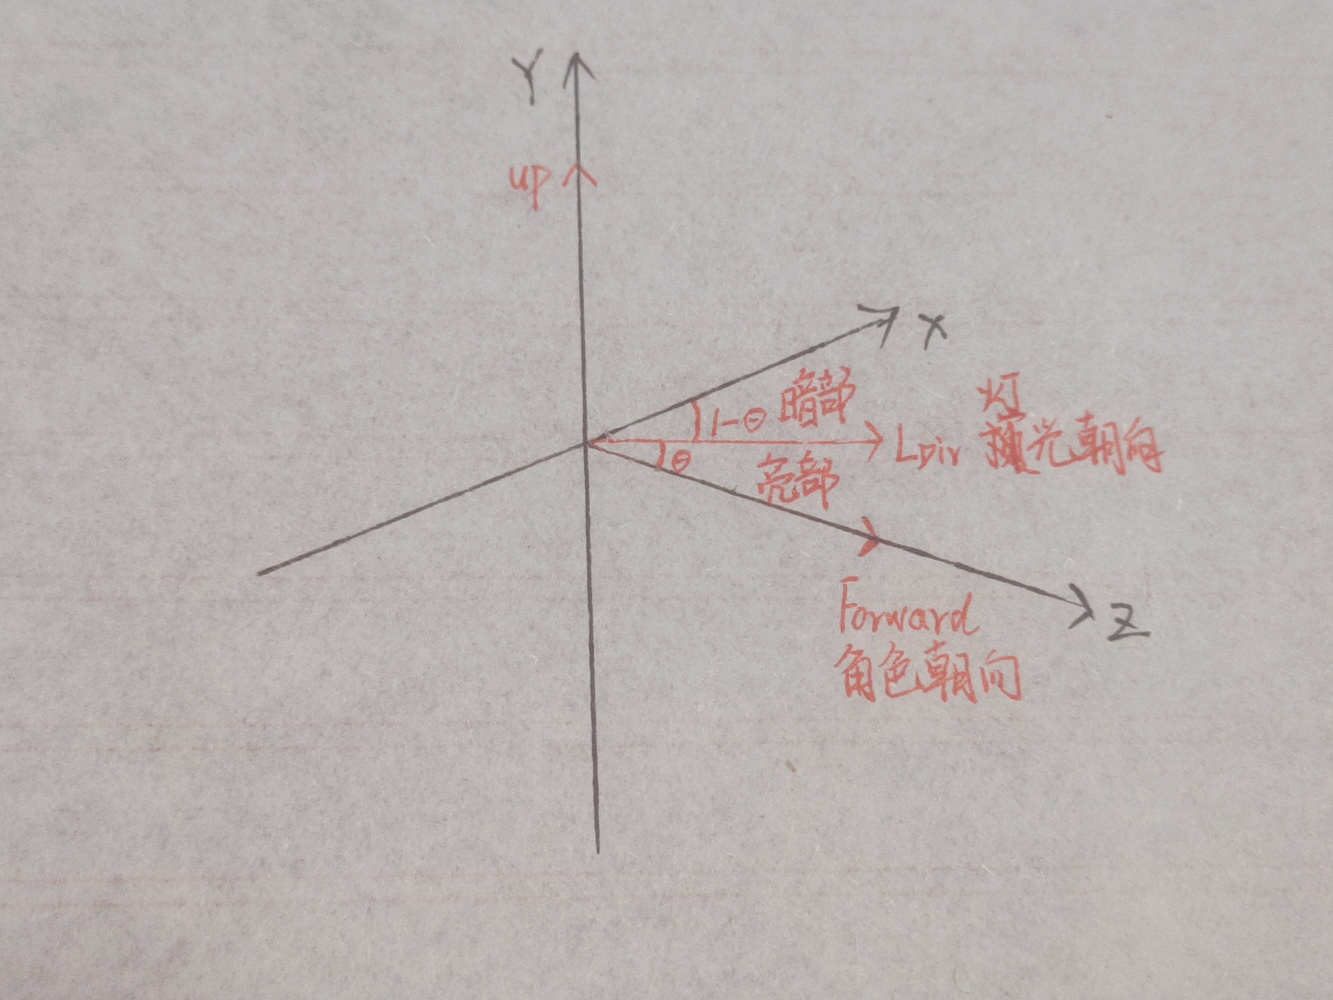 Y
up
X
1-θ 暗部
灯
LDir 光朝向
θ 亮部
Forward
角色朝向
Z